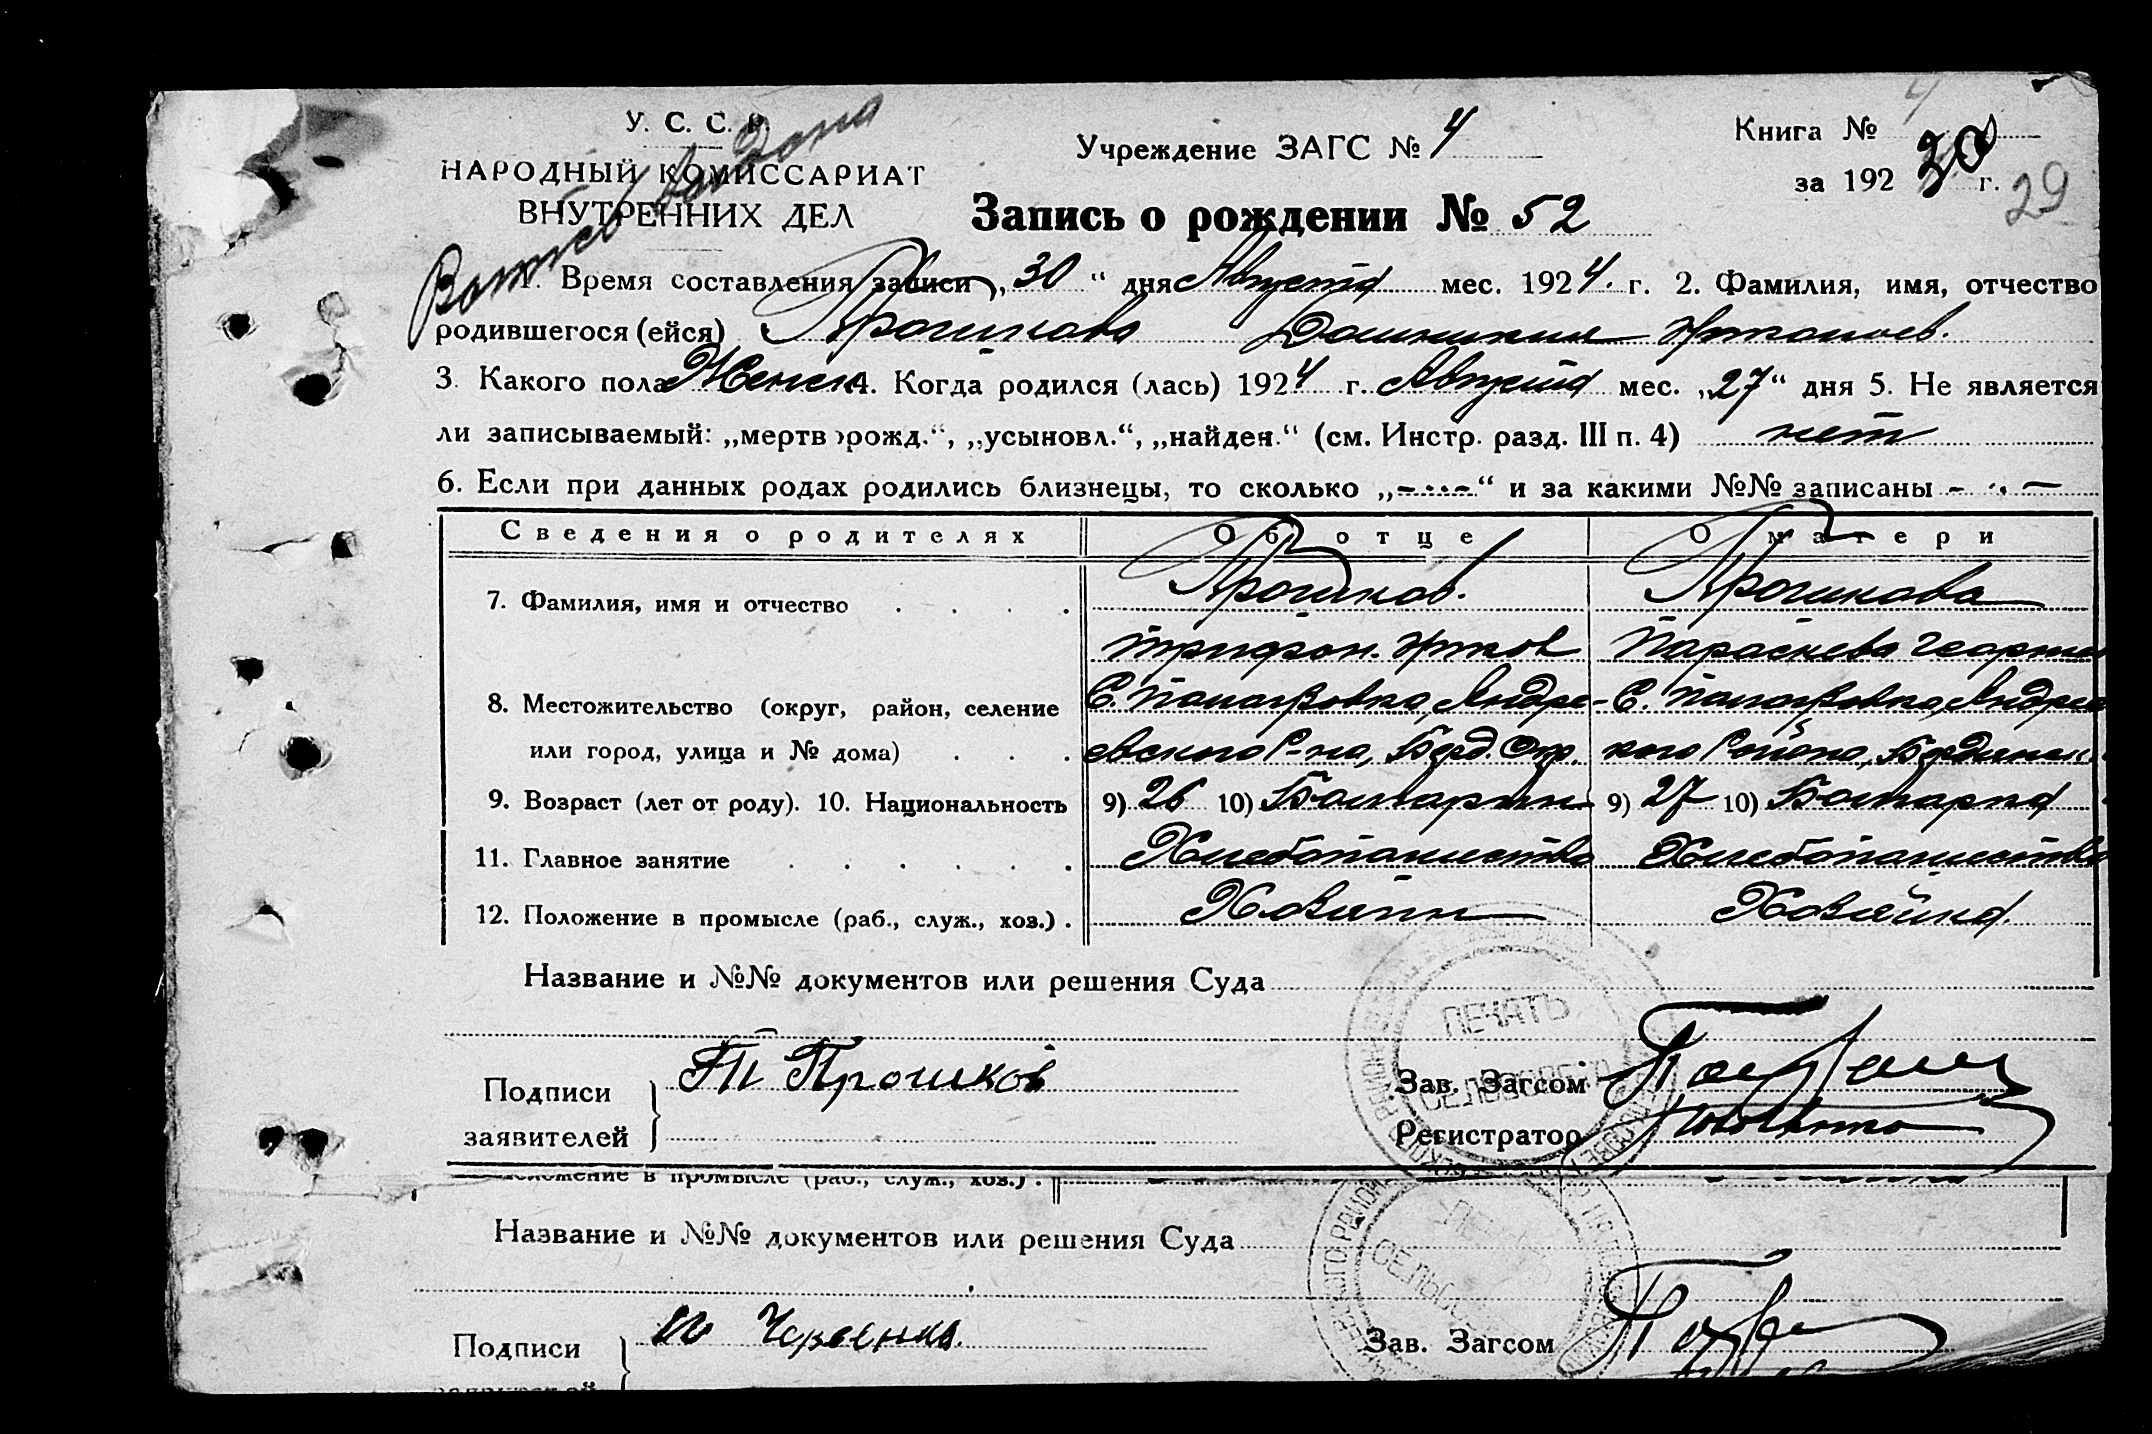 У. С. С. Р.
НАРОДНЫЙ КОМИССАРИАТ
ВНУТРЕННИХ ДЕЛ
Учреждение ЗАГС № 4
Книга №
за 192 г.
29
Запись о рождении № 52
1. Время составления записи „30“ дня Августа мес. 1924. г. 2. Фамилия, имя, отчество
родившегося (ейся)
3. Какого пола Женск 4. Когда родился (лась) 1924 г. Августа мес. „27“ дня 5. Не является
ли записываемый: „мертворожд.“, „усыновл.“, „найден.“ (см. Инстр. разд. III п. 4) нет
6. Если при данных родах родились близнецы, то сколько „-...-“ и за какими №№ записаны -..-
Сведения о родителях Об отце О матери
7. Фамилия, имя и отчество . . . . Прошков. Прошкова
Трифон. Параскева Георгие
8. Местожительство (округ, район, селение
или город, улица и № дома) . . . евского Р-на, Берд. Окр. кого Района, Бердянск.
9. Возраст (лет от роду). 10. Национальность 9) 26 10) Болгарин 9) 27 10) Болгарка
11. Главное занятие . . . . . . Хлебопашество Хлебопашество
12. Положение в промысле (раб., служ., хоз.) . Хозяин Хозяйка.
Название и №№ документов или решения Суда
ПЕЧАТЬ
СЕЛЬСОВЕТА
Подписи
заявителей
Прошков
Зав. Загсом
Регистратор
положение в промысле (раб., служ., хоз.) .
Название и №№ документов или решения Суда
Подписи
Зав. Загсом
заявителей